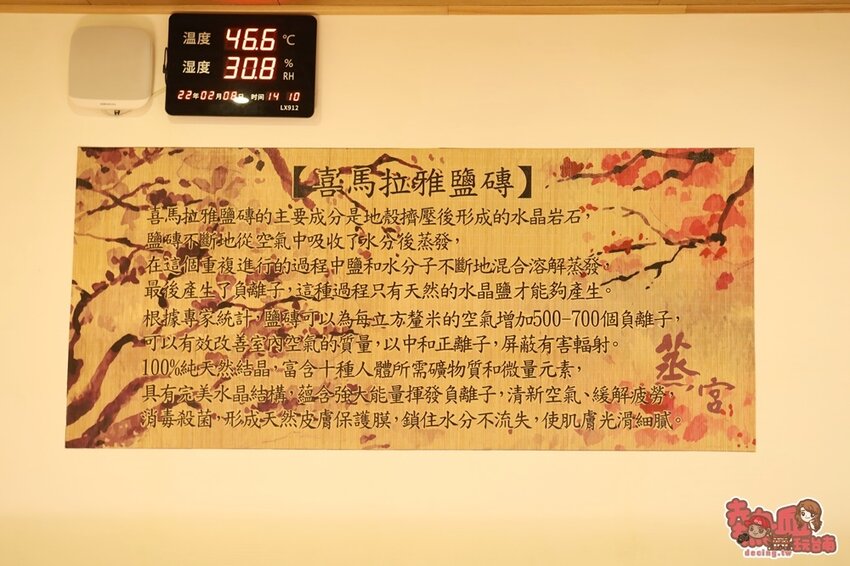 温度 46.6 ℃
湿度 30.8 % RH
22年02月08日 时间 14 10
LX912
【喜馬拉雅鹽磚】
喜馬拉雅鹽磚的主要成分是地殼擠壓後形成的水晶岩石，
鹽磚不斷地從空氣中吸收了水分後蒸發，
在這個重複進行的過程中鹽和水分子不斷地混合溶解蒸發。
最後產生了負離子，這種過程只有天然的水晶鹽才能夠產生。
根據專家統計，鹽磚可以為每立方釐米的空氣增加500-700個負離子，
可以有效改善室內空氣的質量，以中和正離子，屏蔽有害輻射。
100%純天然結晶，富含十種人體所需礦物質和微量元素，
具有完美水晶結構，蘊含強大能量揮發負離子，清新空氣、緩解疲勞，
消毒殺菌，形成天然皮膚保護膜，鎖住水分不流失，使肌膚光滑細膩。
蒸宮
熱血玩台南
decing.tw